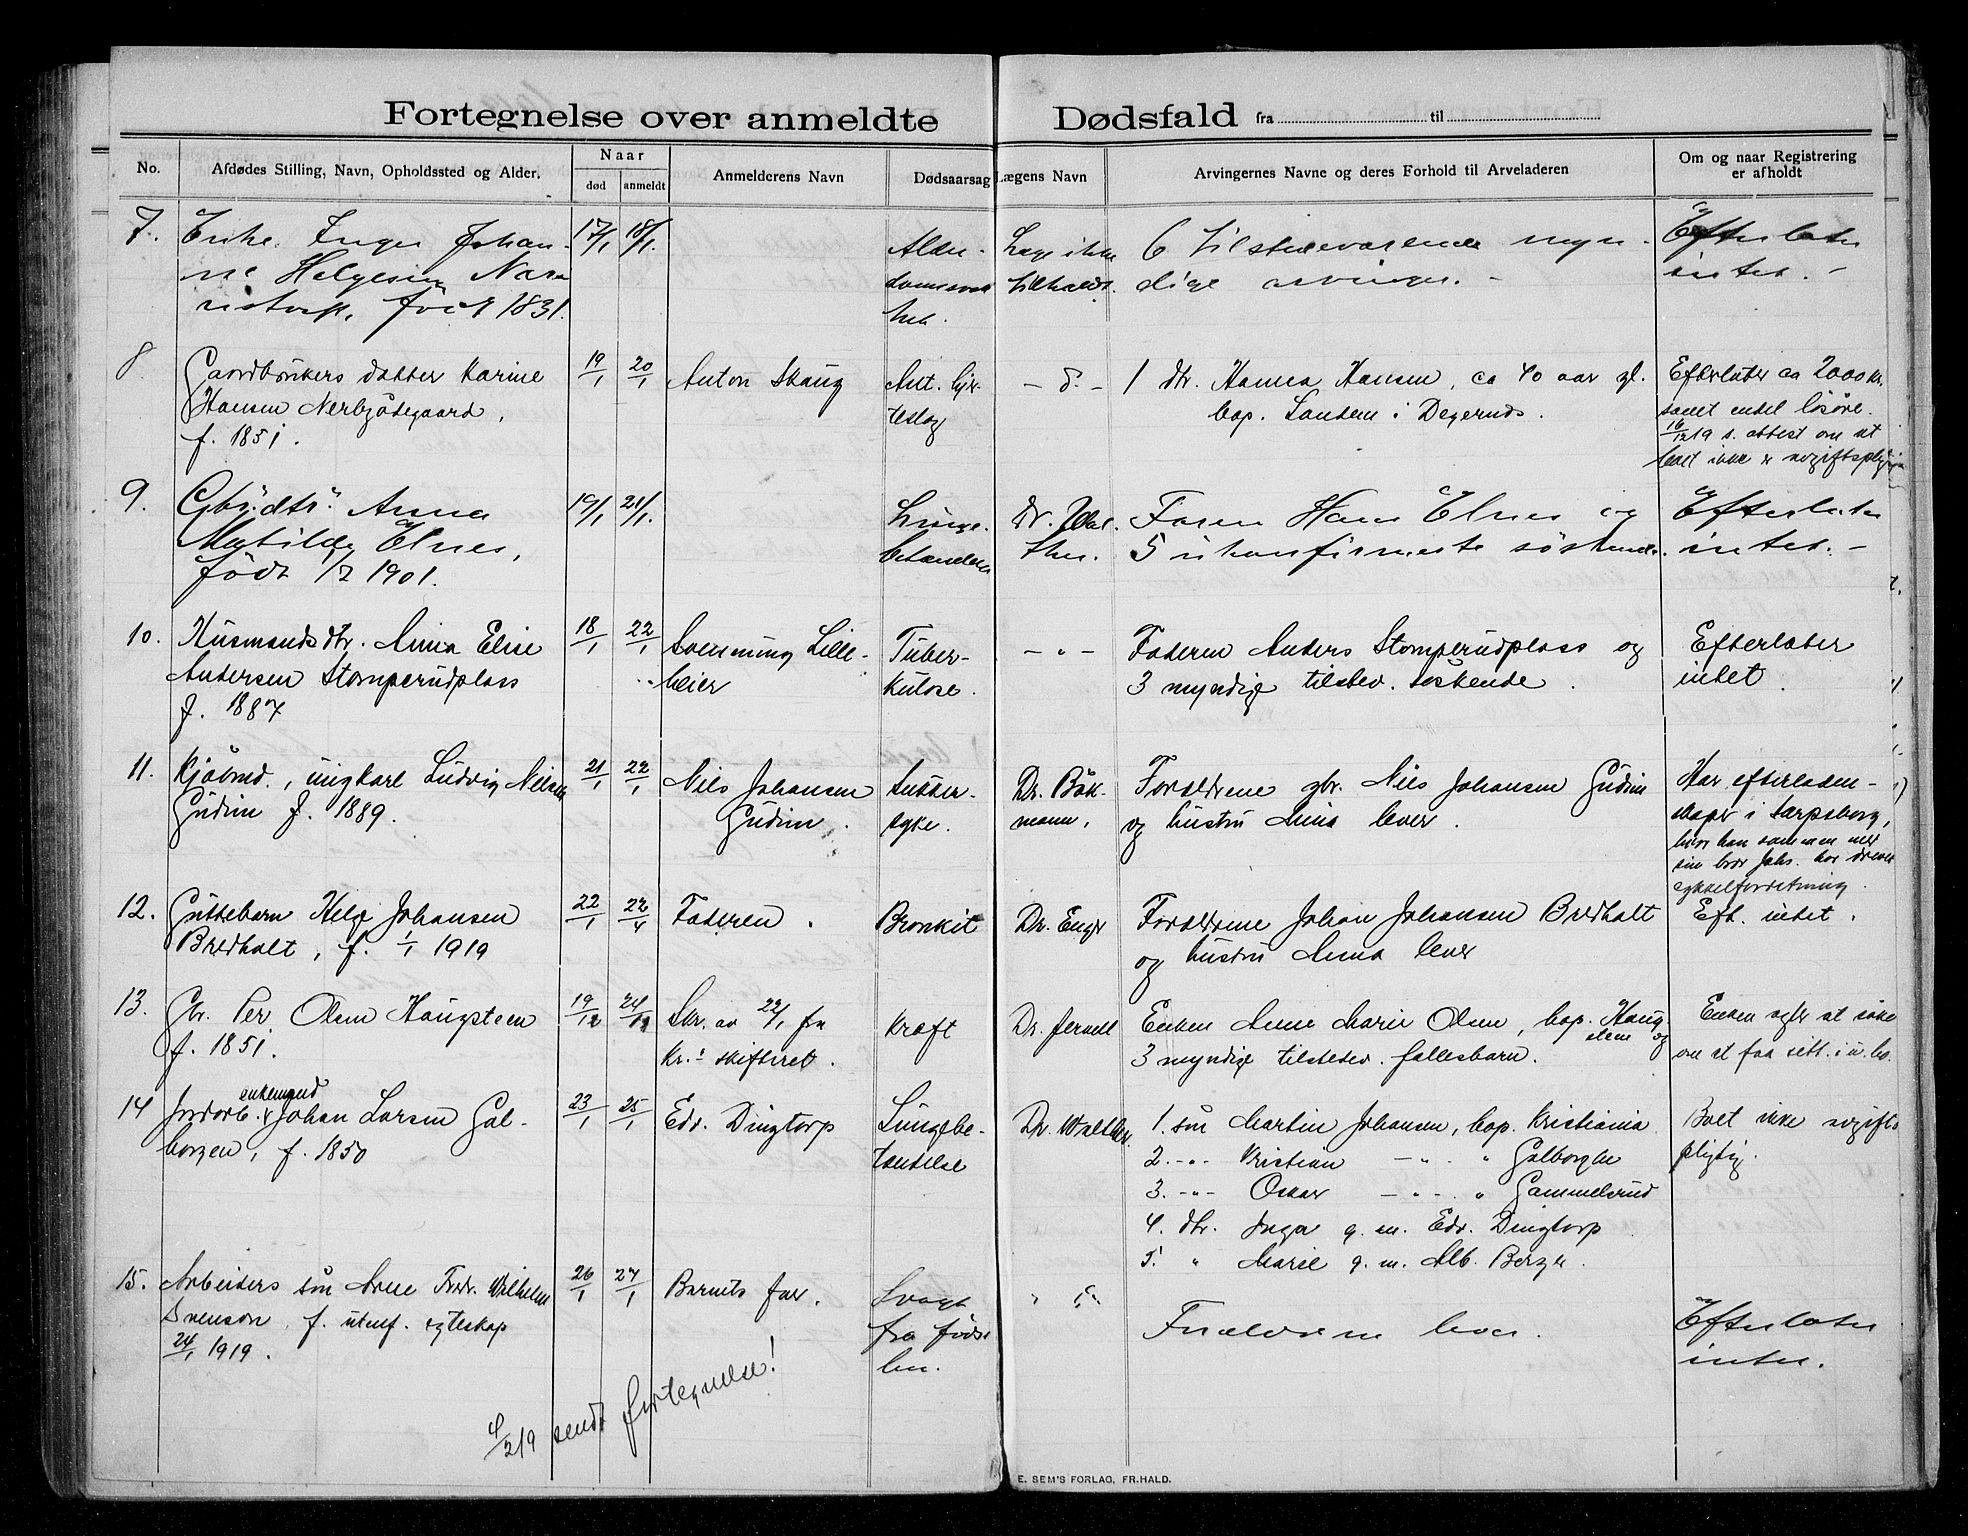 Fortegnelse over anmeldte Dødsfald fra til
No. Afdødes Stilling, Navn, Opholdssted og Alder. Naar død anmeldt Anmelderens Navn Dødsaarsag Lægens Navn Arvingernes Navne og deres Forhold til Arveladeren Om og naar Registrering er afholdt
7. Enke Inger Johan- 17/1 18/1 Alder- Læge ikke 6 tilstedeværende myn- Efterlater
ne Helgesen tilkaldt. dige arvinger. - intet. -
født 1831.
8 Gaardbrukers datter Karine 19/1 20/1 Anton Skaug Akut. hjer- - d. - 1 dtr. Hanna Hansen, ca 40 aar gl. Efterlater ca 2000 kr.
Hansen Nerbyödegaard, teslag bop. Sanden i Degernæs. samt endel lösöre.
f. 1851. 16/12 19 s. attest om at
boet ikke er avgiftspligtig
9. Gbr.dtr. Anna 19/1 21/1. Lunge- Dr. Wal- Faren Hans Elnes og Efterlater
Matilde Elnes, betændelse ther. 5 ukonfirmerte söskende. intet. -
født 1/2 1901.
10. Husmandsdtr. Anna Elise 18/1 22/1 Svenning Lille- Tuber- - " - Faderen Anders Stomperudplass og Efterlater
Andersen Stomperudplass heier kulose. 3 myndige tilstedev. söskende. intet.
f. 1887
11. Kjøbmd., ungkarl Ludvig Nilsen 21/1 22/1 Nils Johansen Sukker- Dr. Böh- Forældrene gbr. Nils Johansen Gudim Har efterladen-
Gudim f. 1889. Gudim. syke. mann, og hustru Anna lever. skaper i Sarpsborg,
hvor han sammen med
sin bror Johs. har drevet
cykkelforretning.
12. Guttebarn Helge Johansen 22/1 22/1 Faderen. Bronkit Dr. Enge Forældrene Johan Johansen Bredholt Eft. intet.
Bredholt, f. 1/1 1919 og hustru Anna lever
13. Gbr. Per Olsen Haugsteen 19/12 24/12 Skr. av 22/1 fra Kræft Dr. Jervell Enken Anne Marie Olsen, bop. Haug- Enken agter at søke
f. 1851. Kr.a skifteret. steen og
3 myndige tilstedev. fællesbarn. om at faa sitt. i u. bo.
14 Jordarb. enkemand Johan Larsen Gal- 23/1 25/1 Edv. Dingtorp Lungebe- Dr. Walther. 1. søn Martin Johansen, bop. Kristiania Boet ikke avgifts
borgen, f. 1850 tændelse 2. -"- Kristian - " - " Galborgen pligtig.
3. -"- Oskar - " - " Gammelsrud
4. dtr. Inga g. m. Edv. Dingtorp
5. " Marie g. m. Alb. Berger.
15. Arbeiders søn Arne Fredr. Wilhelm 26/1 27/1 Barnets far. Svagt " d " Forældrene lever. Efterlater
Svenson, f. utenf. egteskap fra føds- intet.
24/1 1919. len.
4/2 19 sendt fortegnelse!
E. SEM'S FORLAG, FR.HALD.